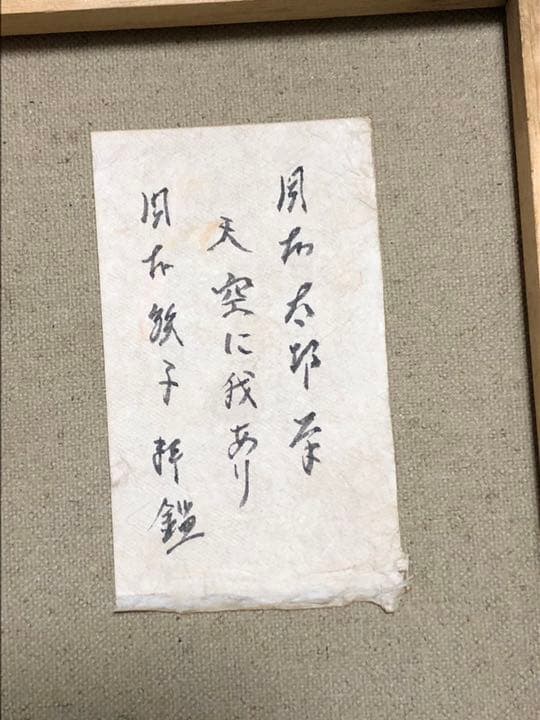 岡本太郎筆
天空に我あり
岡本敏子拝鑑